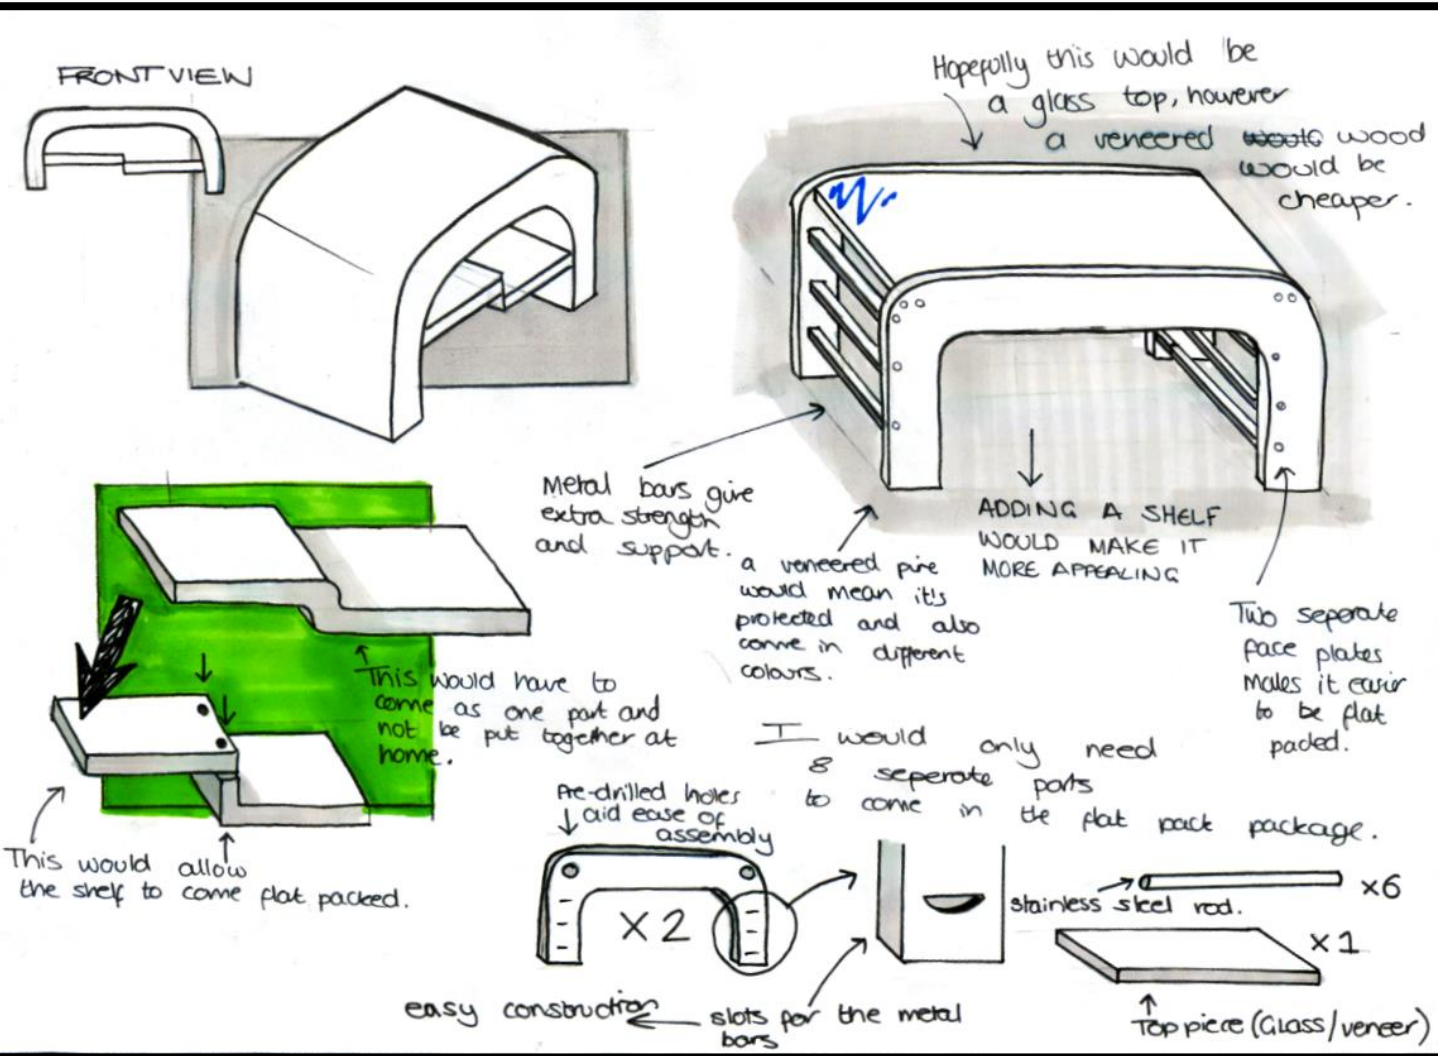 FRONT VIEW
Hopefully this would be
a glass top, however
a veneered would wood
would be
cheaper.
Metal bars give
extra strength
and support.
a veneered pine
would mean it's
protected and also
come in different
colours.
ADDING A SHELF
WOULD MAKE IT
MORE APPEALING
Two seperate
face plates
makes it easier
to be flat
packed.
This would have to
come as one part and
not be put together at
home.
This would allow
the shelf to come flat packed.
I would only need
8 seperate parts
to come in the flat pack package.
Pre-drilled holes
aid ease of
assembly
X2
stainless steel rod.
x6
x1
easy construction
slots for the metal
bars
Top piece (Glass/veneer)